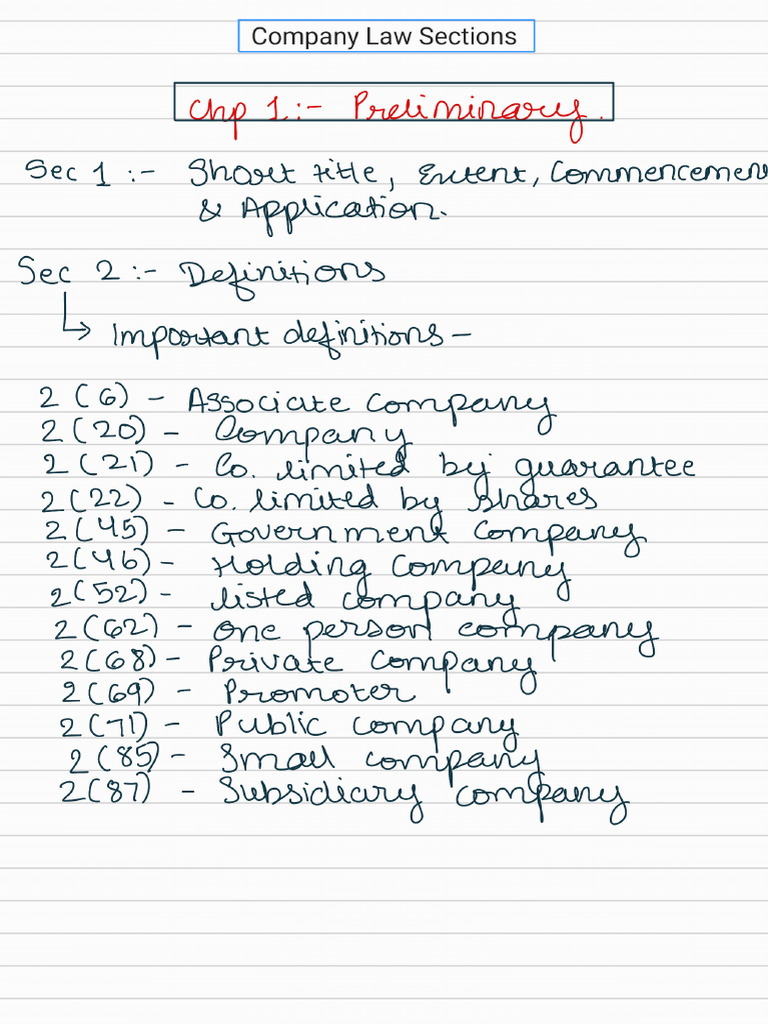 Company Law Sections
Chp 1:- Preliminary.
Sec 1 :- Short title, Extent, Commencemen
& Application.
Sec 2 :- Definitions
↳ Important definitions -
2 (6) - Associate company
2 (20) - Company
2 (21) - Co. limited by guarantee
2 (22) - Co. limited by shares
2 (45) - Government company
2 (46) - Holding company
2 (52) - listed company
2 (62) - one person company
2 (68) - Private company
2 (69) - Promoter
2 (71) - Public company
2 (85) - Small company
2 (87) - Subsidiary company